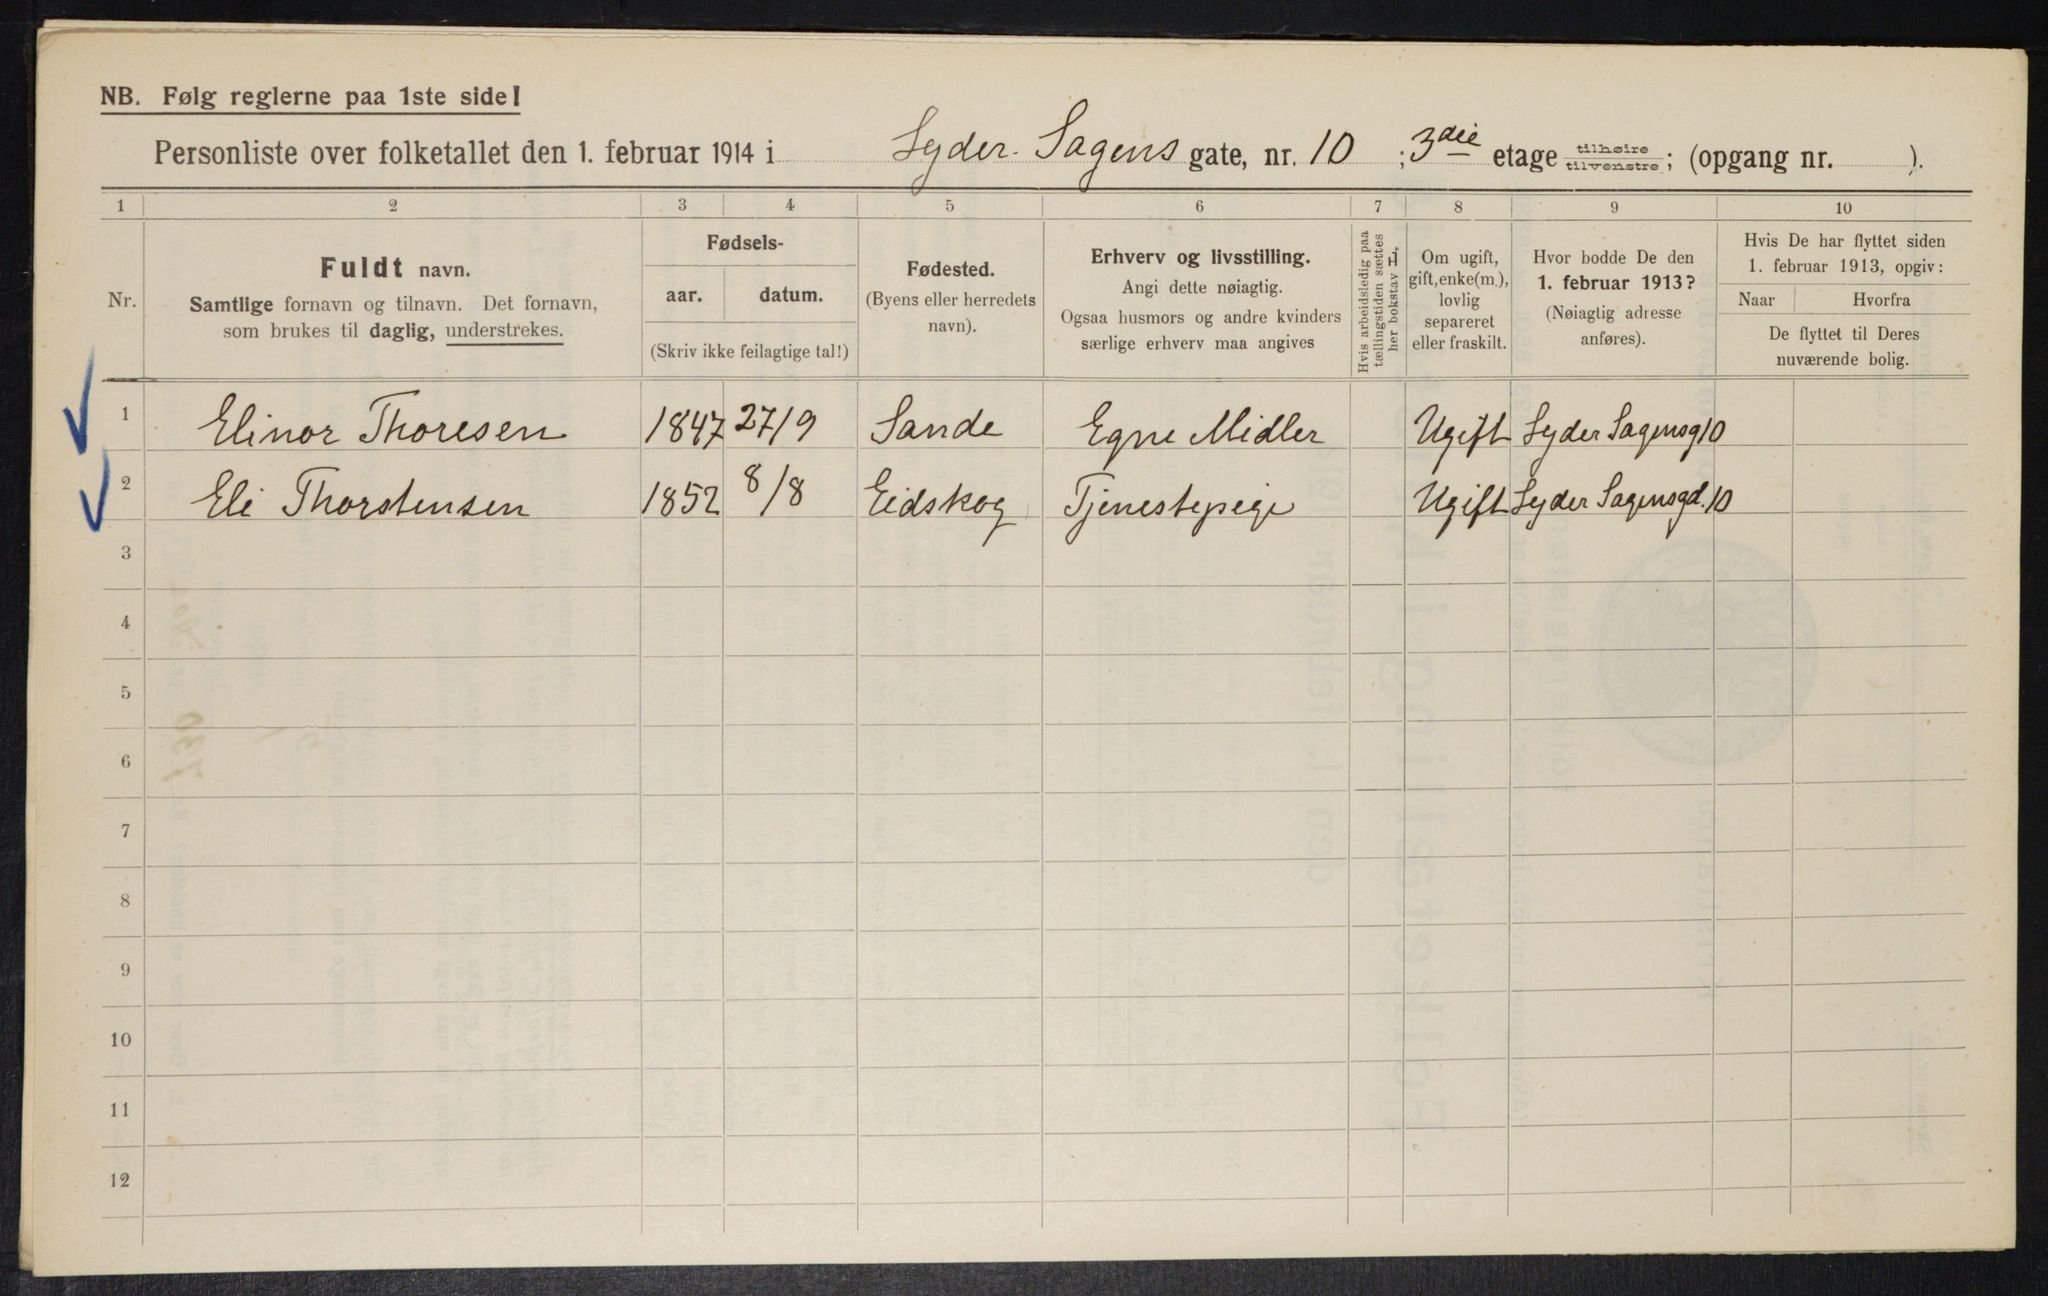 NB. Følg reglerne paa 1ste side!
Personliste over folketallet den 1. februar 1914 i Lyder Sagens gate, nr. 10 ; 3die etage tilhøire tilvenstre; (opgang nr. ).
1 2 3 4 5 6 7 8 9 10
Nr.
Fuldt navn.
Samtlige fornavn og tilnavn. Det fornavn,
som brukes til daglig, understrekes.
Fødsels-
aar. datum.
(Skriv ikke feilagtige tal!)
Fødested.
(Byens eller herredets
navn).
Erhverv og livsstilling.
Angi dette nøiagtig.
Ogsaa husmors og andre kvinders
særlige erhverv maa angives
Hvis arbeidsledig paa
tællingstiden sættes
her bokstav L.
Om ugift,
gift, enke(m.),
lovlig
separeret
eller fraskilt.
Hvor bodde De den
1. februar 1913?
(Nøiagtig adresse
anføres).
Hvis De har flyttet siden
1. februar 1913, opgiv:
Naar Hvorfra
De flyttet til Deres
nuværende bolig.
1 Elinor Thoresen 1847 27/9 Sande Egne Midler Ugift Lyder Sagensg 10
2 Eli Thorstensen 1852 8/8 Eidskog Tjenestepige Ugift Lyder Sagensgd. 10
3
4
5
6
7
8
9
10
11
12